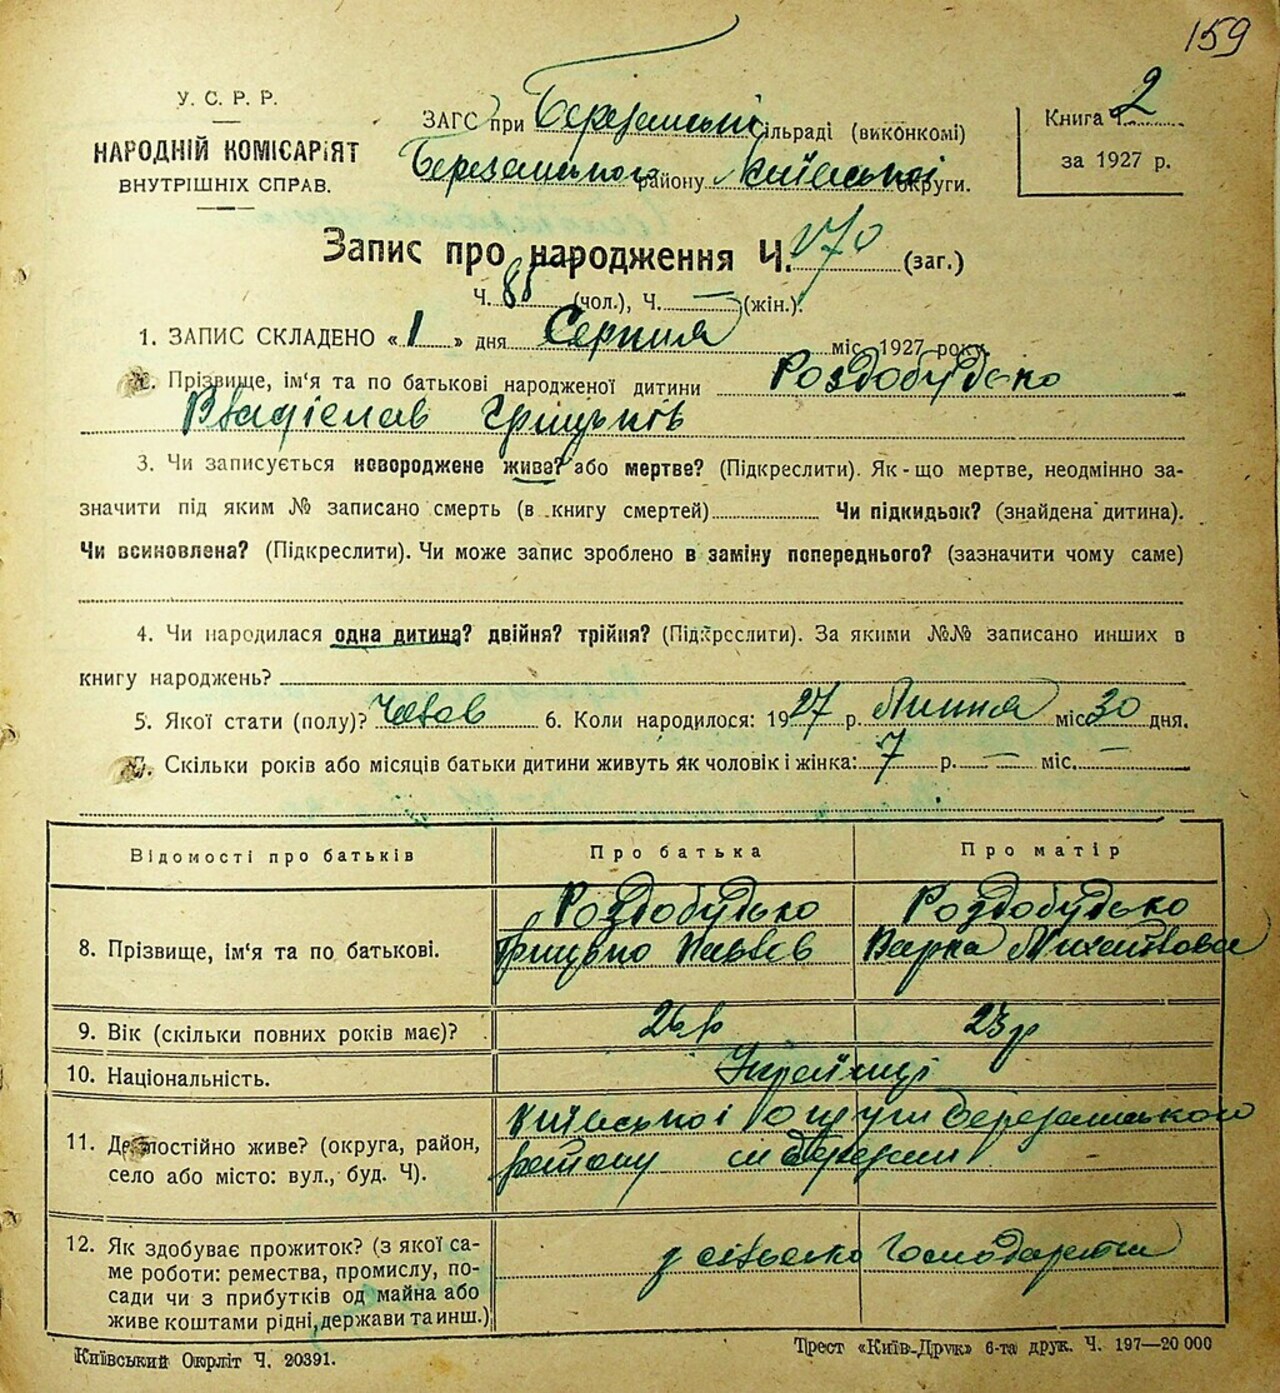 159
У. С. Р. Р.
НАРОДНІЙ КОМІСАРІЯТ
ВНУТРІШНІХ СПРАВ.
ЗАГС при Березанській сільраді (виконкомі)
Березанського району Київської округи.
Книга 2
за 1927 р.
Запис про народження Ч. 170 (заг.)
Ч. 88 (чол.), Ч. — (жін.).
1. ЗАПИС СКЛАДЕНО «1» дня Серпня міс. 1927 року.
2. Прізвище, ім‘я та по батькові народженої дитини Роздобудько
Владіслав Грицьків
3. Чи записується новороджене живе? або мертве? (Підкреслити). Як-що мертве, неодмінно за-
значити під яким № записано смерть (в книгу смертей) Чи підкидьок? (знайдена дитина).
Чи всиновлена? (Підкреслити). Чи може запис зроблено в заміну попереднього? (зазначити чому саме)
4. Чи народилася одна дитина? двійня? трійня? (Підкреслити). За якими №№ записано инших в
книгу народжень?
5. Якої стати (полу)? Чолов 6. Коли народилося: 1927 р. Липня міс. 30 дня.
7. Скільки років або місяців батьки дитини живуть як чоловік і жінка: 7 р. — міс. —
Відомості про батьків Про батька Про матір
8. Прізвище, ім‘я та по батькові. Роздобудько Роздобудько
Грицько Павлів Варка Михайлова
9. Вік (скільки повних років має)? 26 р 23 р
10. Національність. Українці
11. Де постійно живе? (округа, район,
село або місто: вул., буд. Ч).
Київської округи Березанського
району м Березань -
12. Як здобуває прожиток? (з якої са-
ме роботи: ремества, промислу, по-
сади чи з прибутків од майна або
живе коштами рідні, держави та инш.)
з сільсько господарства
Київський Окрліт Ч. 20391.
Трест «Київ-Друк» 6-та друк. Ч. 197—20 000